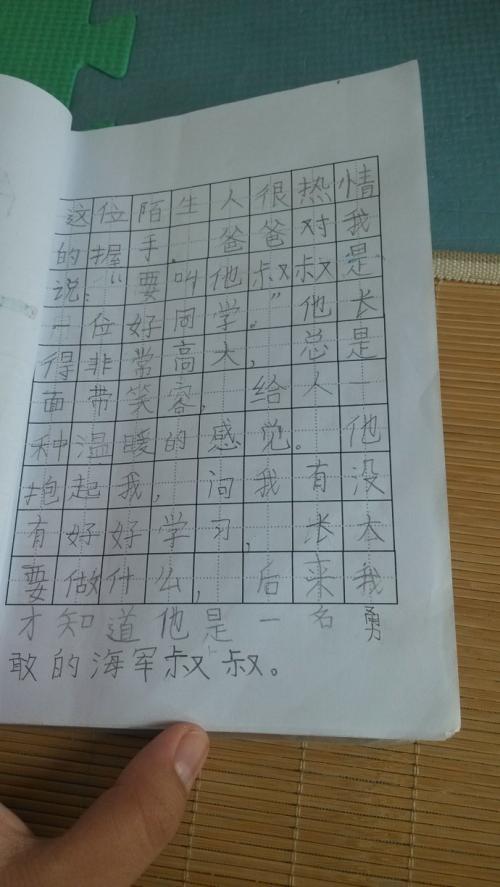 这位陌生人很热情
的握手。爸爸对我
说：“要叫他叔叔是
一位好同学。”他长
得非常高大，总是
面带笑容，给人一
种温暖的感觉。他
抱起我，问我有没
有好好学习，长大
要做什么，后来我
才知道他是一名勇
敢的海军叔叔。